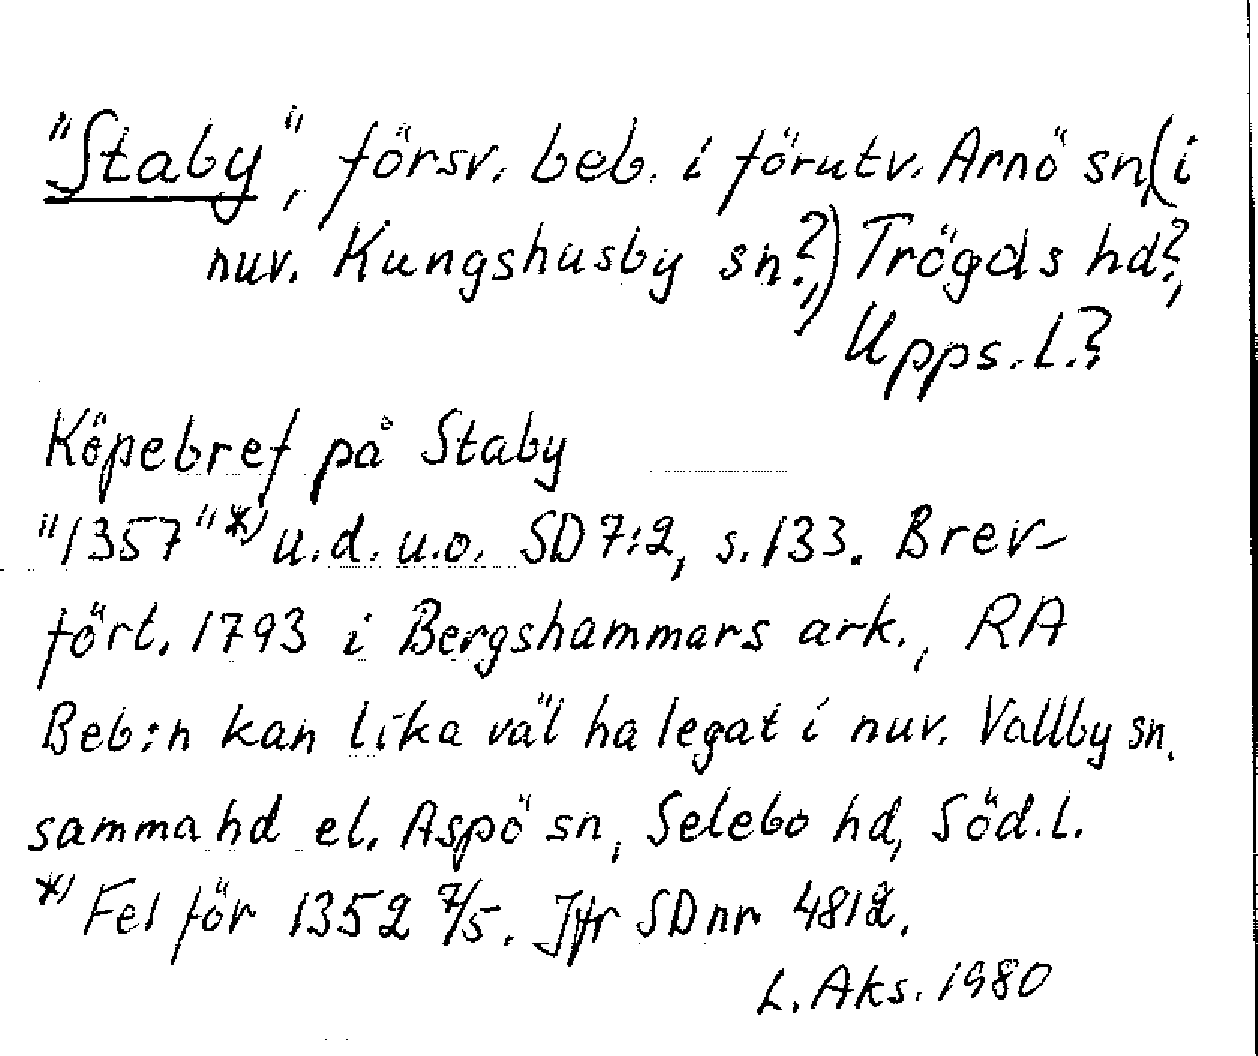 "Staby", försv. beb. i förutv. Arnö sn, (i
nuv. Kungshusby sn?,) Trögds hd?,
Upps. L.?
Köpebref på Staby
"1357"*) u.d. u.o. SD 7:2, s. 133. Brev-
fört. 1793 i Bergshammars ark., RA
Beb:n kan lika väl ha legat i nuv. Vallby sn.
samma hd el. Aspö sn, Selebo hd, Söd. L.
*) Fel för 1352 7/5. Jfr SD nr 4812.
L. Aks. 1980